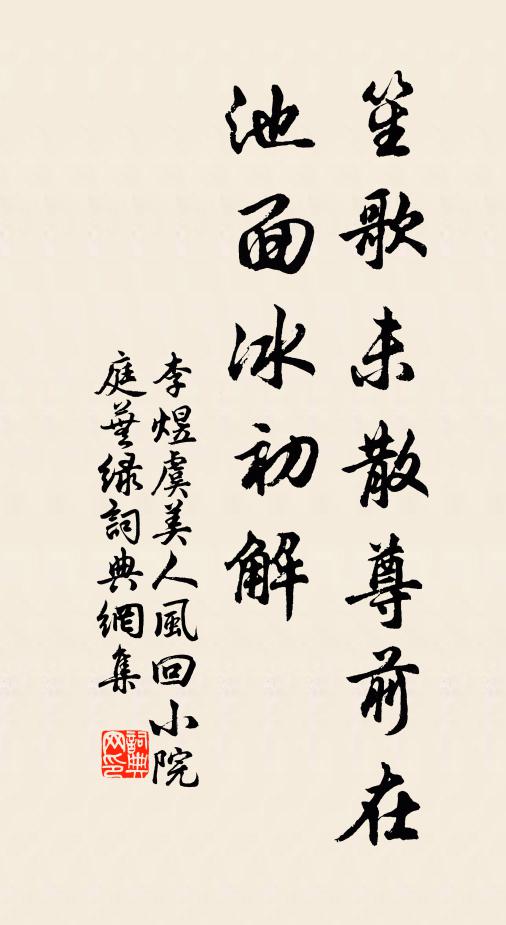 笙歌未散尊前在
池面冰初解
李煜虞美人風回小院
庭蕪緑詞典網集
詞典
网印